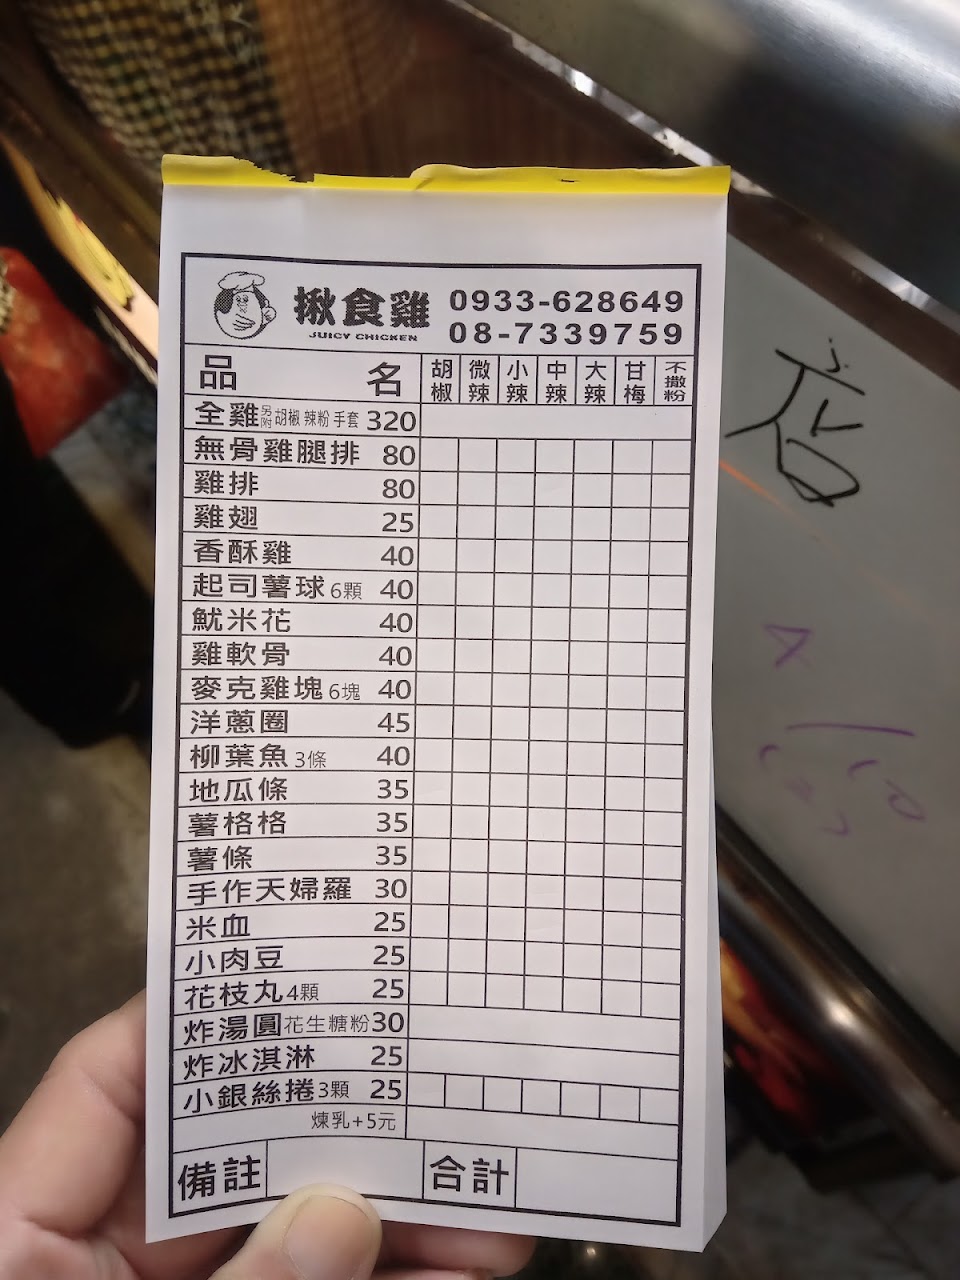 揪食雞 0933-628649
JUICY CHICKEN 08-7339759
品名 胡椒 微辣 小辣 中辣 大辣 甘梅 不撒粉
全雞 另附 胡椒 辣粉 手套 320
無骨雞腿排 80
雞排 80
雞翅 25
香酥雞 40
起司薯球 6顆 40
魷米花 40
雞軟骨 40
麥克雞塊 6塊 40
洋蔥圈 45
柳葉魚 3條 40
地瓜條 35
薯格格 35
薯條 35
手作天婦羅 30
米血 25
小肉豆 25
花枝丸 4顆 25
炸湯圓 花生糖粉 30
炸冰淇淋 25
小銀絲捲 3顆 25
煉乳+5元
備註 合計
店